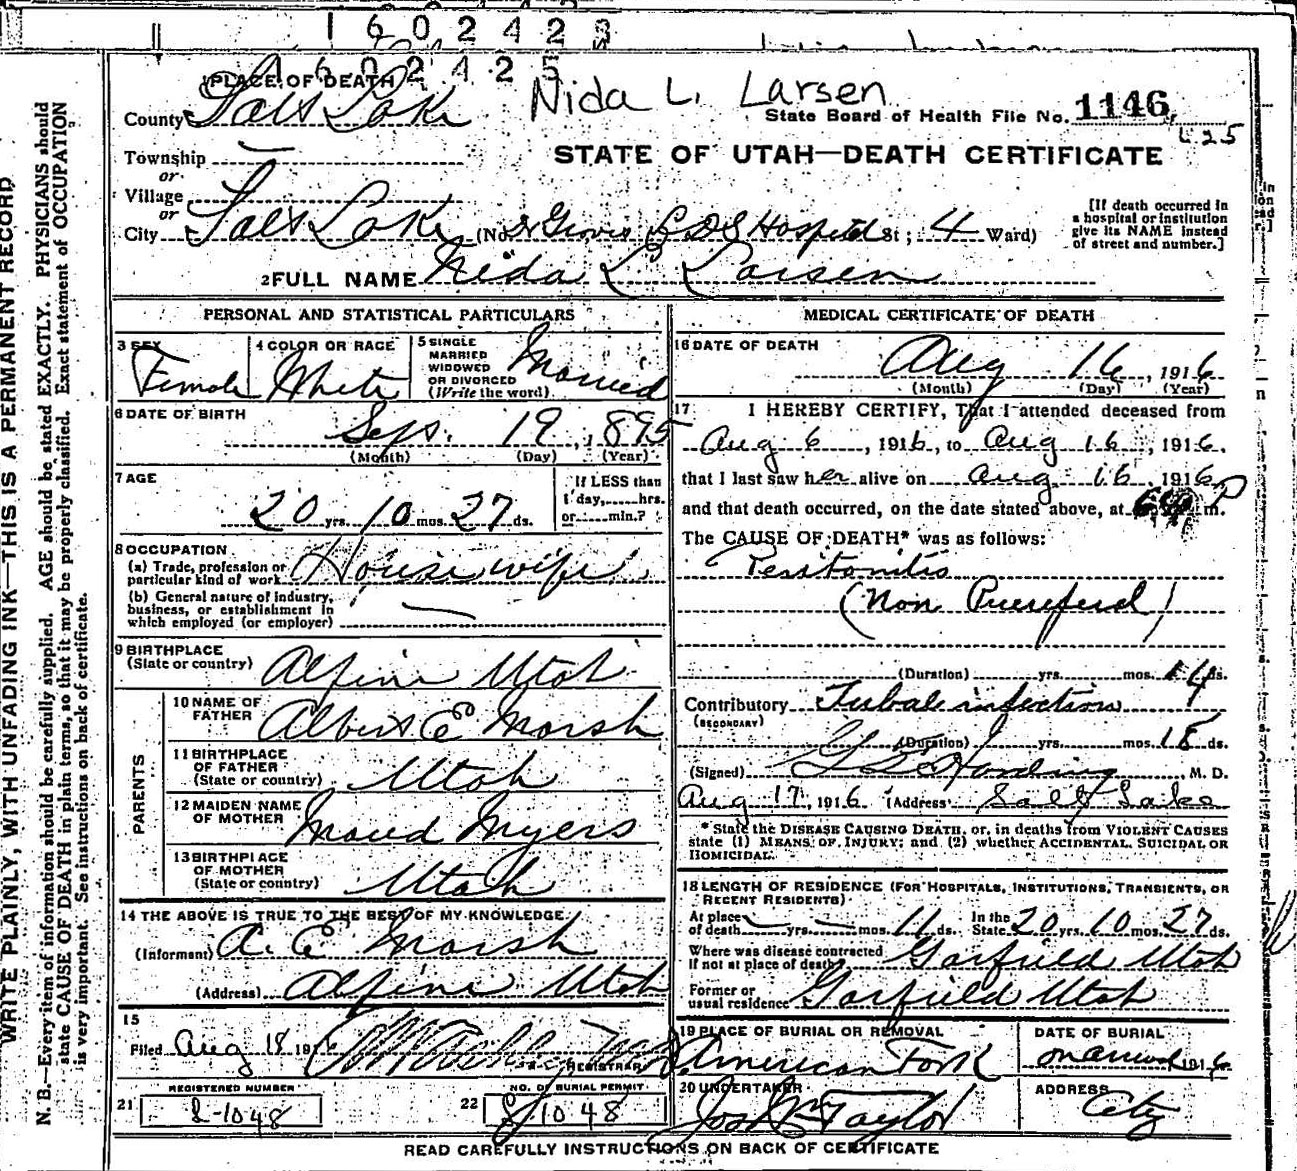 1602423
1602425
Nida L. Larsen
PLACE OF DEATH
County Salt Lake
State Board of Health File No. 1146
Township —
or
STATE OF UTAH—DEATH CERTIFICATE
Village
or
City Salt Lake (No. Groves L.D.S Hospital St; 4 Ward)
[If death occurred in a hospital or institution give its NAME instead of street and number.]
2 FULL NAME Nida L Larsen
PERSONAL AND STATISTICAL PARTICULARS
3 SEX Female
4 COLOR OR RACE White
5 SINGLE MARRIED WIDOWED OR DIVORCED (Write the word) Married
6 DATE OF BIRTH Sept. 19, 1895
(Month) (Day) (Year)
7 AGE
20 yrs. 10 mos. 27 ds.
If LESS than 1 day, hrs. or min.?
8 OCCUPATION
(a) Trade, profession or particular kind of work Housewife
(b) General nature of industry, business, or establishment in which employed (or employer) —
9 BIRTHPLACE
(State or country) Alpine Utah
PARENTS
10 NAME OF FATHER Albert E Marsh
11 BIRTHPLACE OF FATHER (State or country) Utah
12 MAIDEN NAME OF MOTHER Maud Myers
13 BIRTHPLACE OF MOTHER (State or country) Utah
14 THE ABOVE IS TRUE TO THE BEST OF MY KNOWLEDGE
(Informant) A. E. Marsh
(Address) Alpine Utah
15
Filed Aug 18 1916
REGISTRAR
REGISTERED NUMBER
21 L-1048
NO. OF BURIAL PERMIT
22 L 1048
MEDICAL CERTIFICATE OF DEATH
16 DATE OF DEATH Aug 16, 1916
(Month) (Day) (Year)
17 I HEREBY CERTIFY, That I attended deceased from
Aug 6, 1916, to Aug 16, 1916.
that I last saw her alive on Aug. 16 1916
and that death occurred, on the date stated above, at P m.
The CAUSE OF DEATH* was as follows:
Peritonitis
(Non Puerperal)
(Duration) yrs. mos. 14 ds.
Contributory Tubal infection
(SECONDARY)
(Duration) yrs. mos. 18 ds.
(Signed) Harding, M. D.
Aug 17, 1916 (Address Salt Lake
* State the DISEASE CAUSING DEATH, or, in deaths from VIOLENT CAUSES
state (1) MEANS OF INJURY; and (2) whether ACCIDENTAL, SUICIDAL OR
HOMICIDAL.
18 LENGTH OF RESIDENCE (FOR HOSPITALS, INSTITUTIONS, TRANSIENTS, OR
RECENT RESIDENTS)
At place of death — yrs. — mos. 11 ds. In the State 20 yrs. 10 mos. 27 ds.
Where was disease contracted if not at place of death Garfield Utah
Former or usual residence Garfield Utah
19 PLACE OF BURIAL OR REMOVAL
American Fork
DATE OF BURIAL
1916
20 UNDERTAKER
Jos Wm Taylor
ADDRESS
City
READ CAREFULLY INSTRUCTIONS ON BACK OF CERTIFICATE
WRITE PLAINLY, WITH UNFADING INK—THIS IS A PERMANENT RECORD
N. B.—Every item of information should be carefully supplied. AGE should be stated EXACTLY. PHYSICIANS should
state CAUSE OF DEATH in plain terms, so that it may be properly classified. Exact statement of OCCUPATION
is very important. See Instructions on back of certificate.